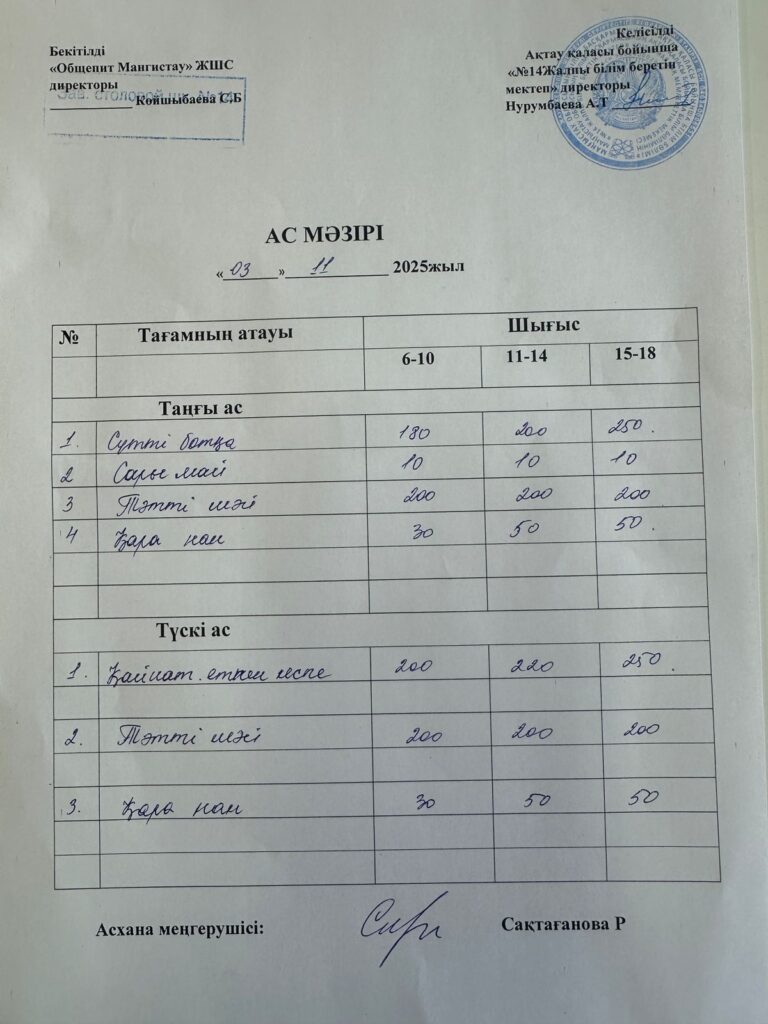 Бекітілді
«Общепит Мангистау» ЖШС
директоры
Зав. столовой шк. №14
Койшыбаева С.Б
Келісілді
Ақтау қаласы бойынша
«№14Жалпы білім беретін
мектеп» директоры
Нурумбаева А.Т
АС МӘЗІРІ
«03» 11 2025жыл
№ Тағамның атауы Шығыс
6-10 11-14 15-18
Таңғы ас
1. Сүтті ботқа 180 200 250.
2 Сары май 10 10 10
3 Тәтті шәй 200 200 200
4 Қара нан 30 50 50.
Түскі ас
1. Қайнат. еткен кеспе 200 220 250.
2. Тәтті шәй 200 200 200
3. Қара нан 30 50 50
Асхана меңгерушісі: Сақтағанова Р